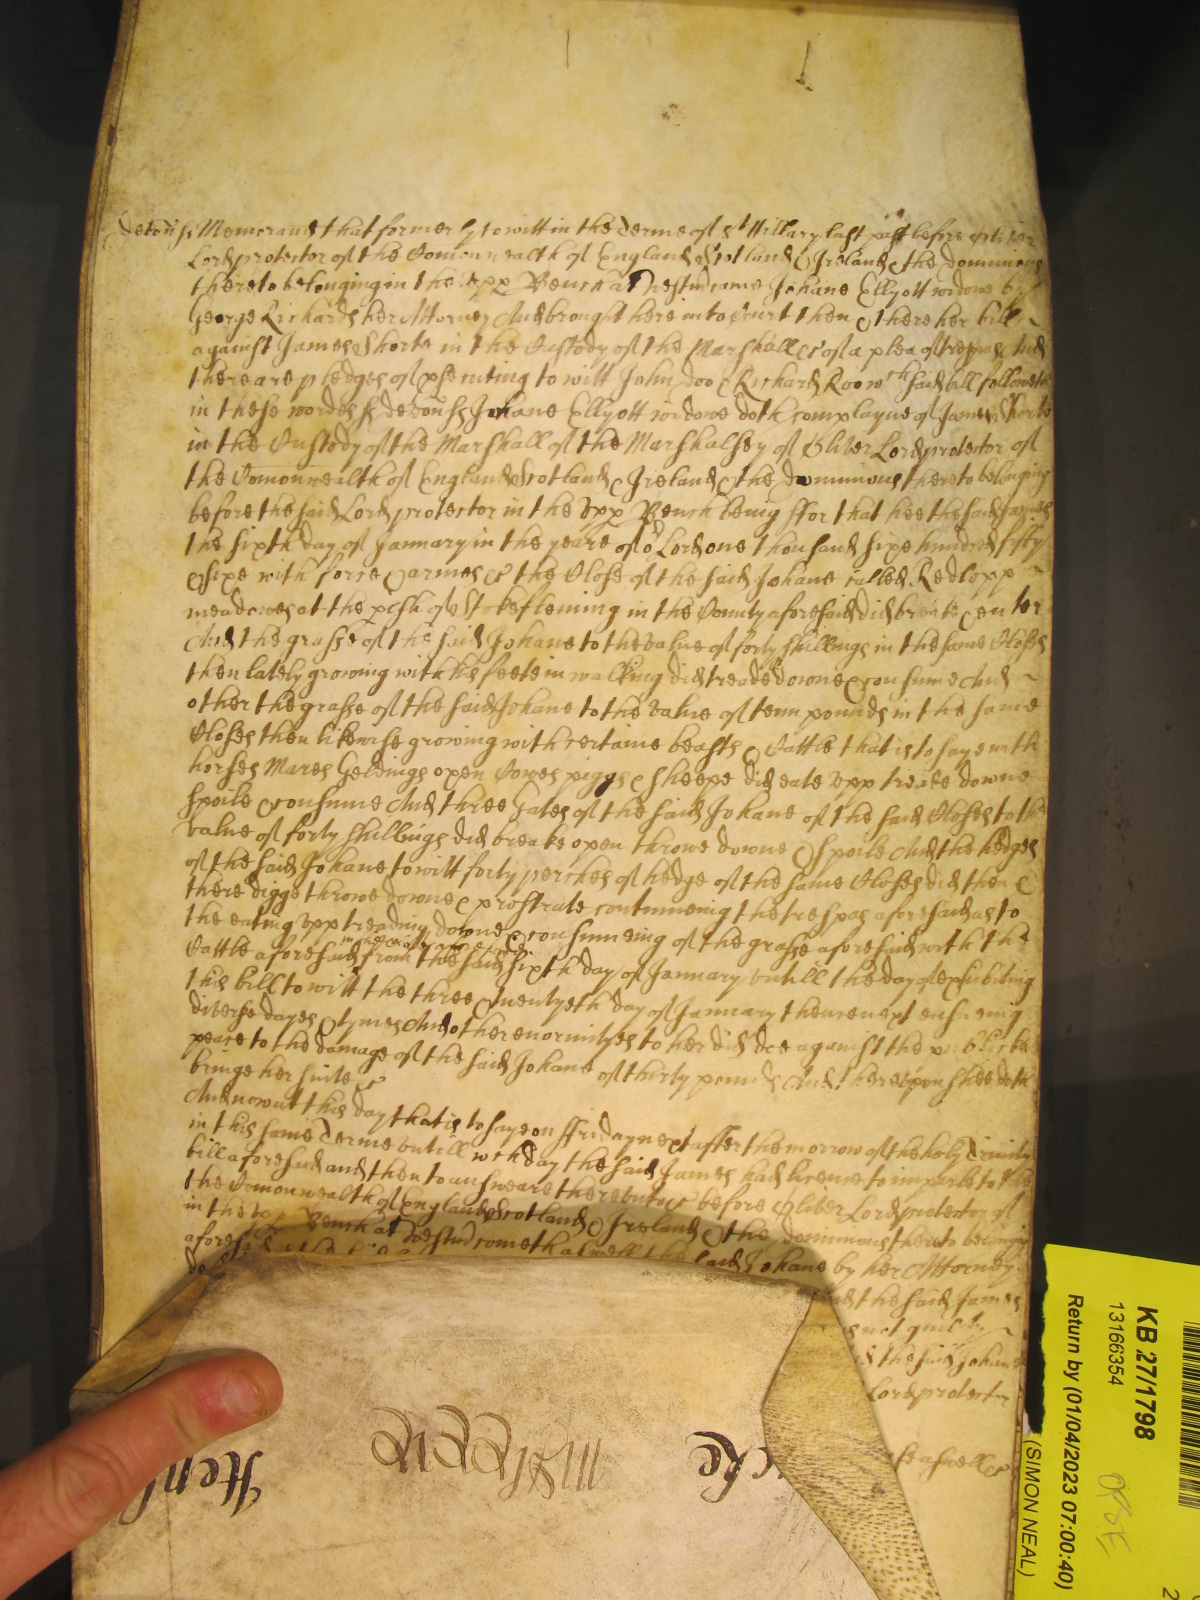 Devon ss Memorand that formerly to witt in the Terme of st Hillary last past before Oliver
Lord protector of the Comonwealth of England Scotland & Ireland & the dominions
thereto belonging in the upp Bench at Westm came Johane Ellyott widowe by
George Richards her Attorney And brought here into Court then & there her bill
against James Shorte in the Custody of the Marshall &c of a plea of trespas And
there are pledges of psecuting to witt John Doo & Richard Roo wch said bill followeth
in these wordes ss Devon ss Johane Ellyott widowe doth complayne of James Shorte
in the Custody of the Marshall of the Marshalsey of Oliver Lord protector of
the Comonwealth of England Scotland & Ireland & the dominions thereto belonging
before the said Lord protector in the upp Bench being ffor that hee the said James
the sixth day of January in the yeare of or Lord one thousand sixe hundred fifty
& sixe with force & armes &c the Close of the said Johane called Redlopp
meadowes at the pish of Stokefleming in the County aforesaid did breake & enter
And the grasse of the said Johane to the value of forty shillings in the same Closes
then lately growing with his feete in walking did treade downe & consume And
other the grasse of the said Johane to the value of tenn pounds in the same
Closes then likewise growing with certaine beasts & Cattle that is to saye with
horses Mares Geldings oxen Cowes piggs & sheepe did eate upp treade downe
spoile & consume And three Gates of the said Johane of the said Closes to the
value of forty shillings did breake open throwe downe & spoile And the hedges
of the said Johane to witt forty perches of hedge of the same Closes did then &
there digge throwe downe & prostrate continueing the trespas aforesaid as to
the eating upp treading downe & consumeing of the grasse aforesaid with the
Cattle aforesaid from the said sixth day of January untill the day of exhibiting
this bill to witt the three & twentyeth day of January then next ensueing
diverse dayes & tymes And other enormityes to her did doe against the publicke
peace to the damage of the said Johane of thirty pounds And thereupon shee doth
bringe her suite &c
And now at this day that is to saye on ffriday next after the morrow of the holy Trinity
in this same Terme untill wch day the said James had licence to imparle to the
bill aforesaid and then to answeare thereunto &c before Oliver Lord protector of
the Comonwealth of England Scotland & Ireland & the dominions thereto belonging
in the upp Bench at Westm cometh aswell the said Johane by her Attorney
aforesaid
And the said James
not guilty
the said Johane
Lord protector
aswell &c
KB 27/1798
13166354
Return by (01/04/2023 07:00:40)
(SIMON NEAL)